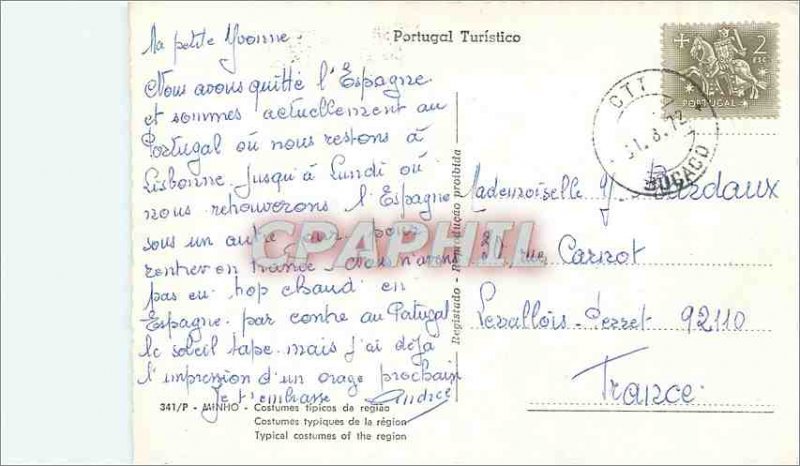 Ma petite Yvonne.
Nous avons quitté l'Espagne
et sommes actuellement au
Portugal où nous restons à
Lisbonne jusqu'à Lundi où
nous retrouverons l'Espagne
sous un autre jour pour
rentrer en France. Nous n'avons
pas eu trop chaud en
Espagne. par contre au Portugal
le soleil tape. mais j'ai déjà
l'impression d'un orage prochain
Je t'embrasse Andrée
341/P - MINHO - Costumes típicos da região
Costumes typiques de la région
Typical costumes of the region
Portugal Turístico
Registado - Reprodução proibida
2
ESC
PORTUGAL
CTT
31.8.72
BUÇACO
Mademoiselle Y Durdaux
rue Carnot
Levallois-Perret 92110
France.
CPAPHIL